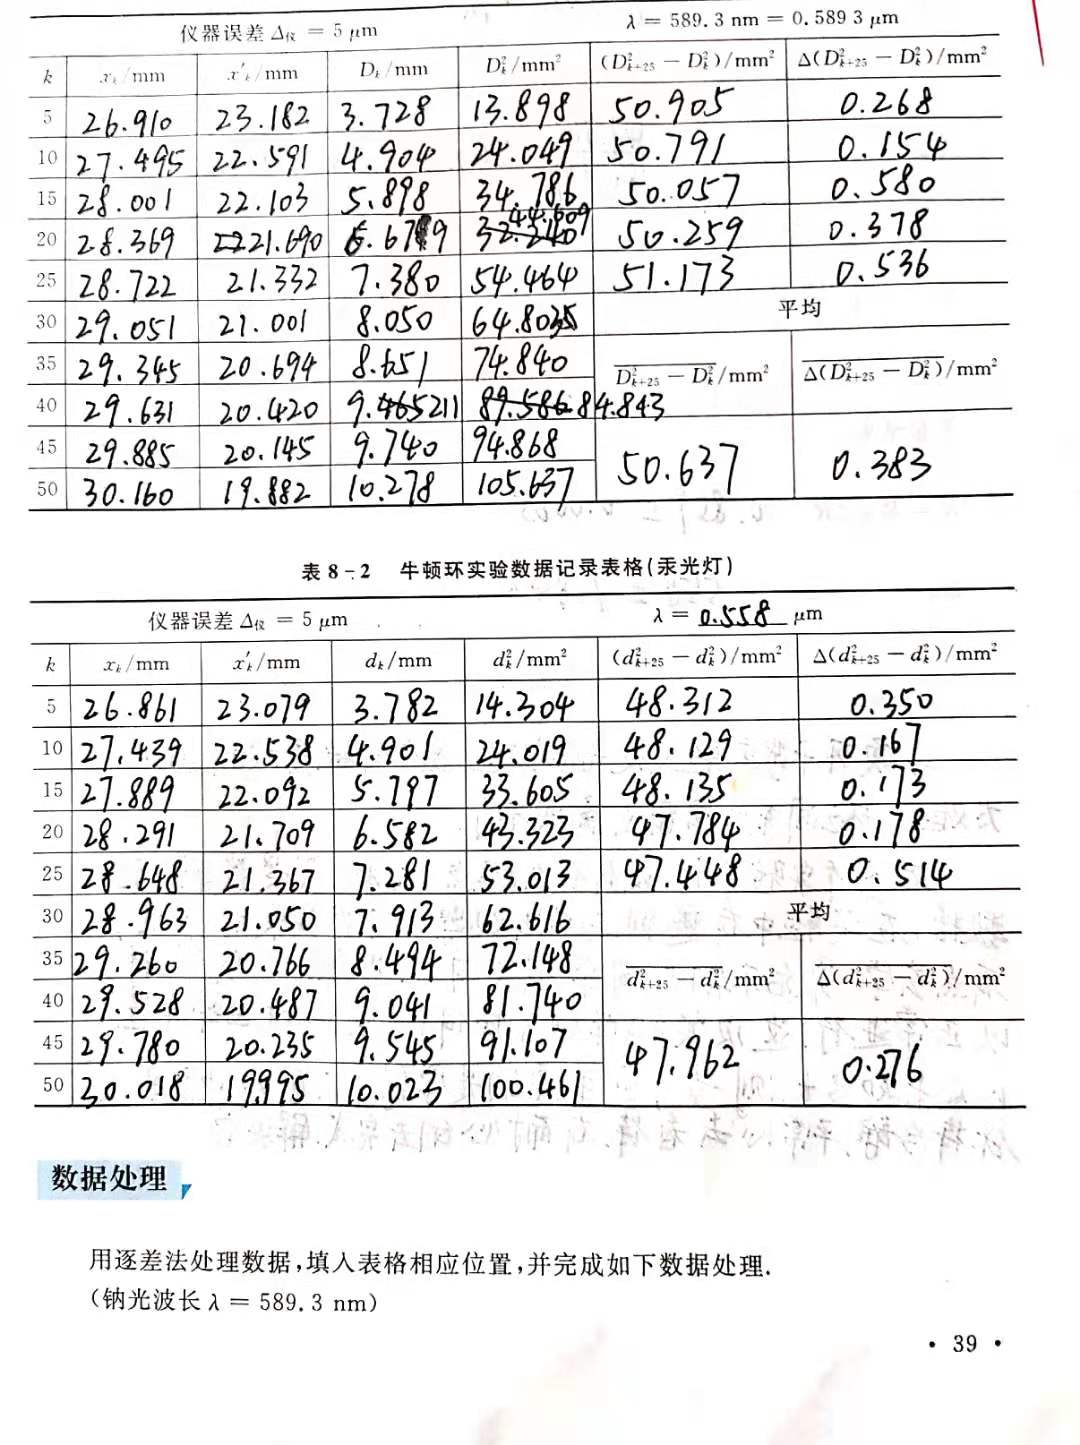 仪器误差 Δ仪 = 5 μm λ = 589.3 nm = 0.589 3 μm
k xₖ/mm x′ₖ/mm Dₖ/mm D²ₖ/mm² (D²ₖ₊₂₅ − D²ₖ)/mm² Δ(D²ₖ₊₂₅ − D²ₖ)/mm²
5 26.910 23.182 3.728 13.898 50.905 0.268
10 27.495 22.591 4.904 24.049 50.791 0.154
15 28.001 22.103 5.898 34.786 50.057 0.580
20 28.369 21.690 6.679 44.609 50.259 0.378
25 28.722 21.332 7.380 54.464 51.173 0.536
30 29.051 21.001 8.050 64.803 平均
35 29.345 20.694 8.651 74.840 D²ₖ₊₂₅ − D²ₖ/mm² Δ(D²ₖ₊₂₅ − D²ₖ)/mm²
40 29.631 20.420 9.211 84.843
45 29.885 20.145 9.740 94.868 50.637 0.383
50 30.160 19.882 10.278 105.637
表 8-2 牛顿环实验数据记录表格(汞光灯)
仪器误差 Δ仪 = 5 μm λ = 0.558 μm
k xₖ/mm x′ₖ/mm dₖ/mm d²ₖ/mm² (d²ₖ₊₂₅ − d²ₖ)/mm² Δ(d²ₖ₊₂₅ − d²ₖ)/mm²
5 26.861 23.079 3.782 14.304 48.312 0.350
10 27.439 22.538 4.901 24.019 48.129 0.167
15 27.889 22.092 5.797 33.605 48.135 0.173
20 28.291 21.709 6.582 43.323 47.784 0.178
25 28.648 21.367 7.281 53.013 47.448 0.514
30 28.963 21.050 7.913 62.616 平均
35 29.260 20.766 8.494 72.148 d²ₖ₊₂₅ − d²ₖ/mm² Δ(d²ₖ₊₂₅ − d²ₖ)/mm²
40 29.528 20.487 9.041 81.740
45 29.780 20.235 9.545 91.107 47.962 0.276
50 30.018 19.995 10.023 100.461
数据处理
用逐差法处理数据,填入表格相应位置,并完成如下数据处理.
(钠光波长 λ = 589.3 nm)
· 39 ·